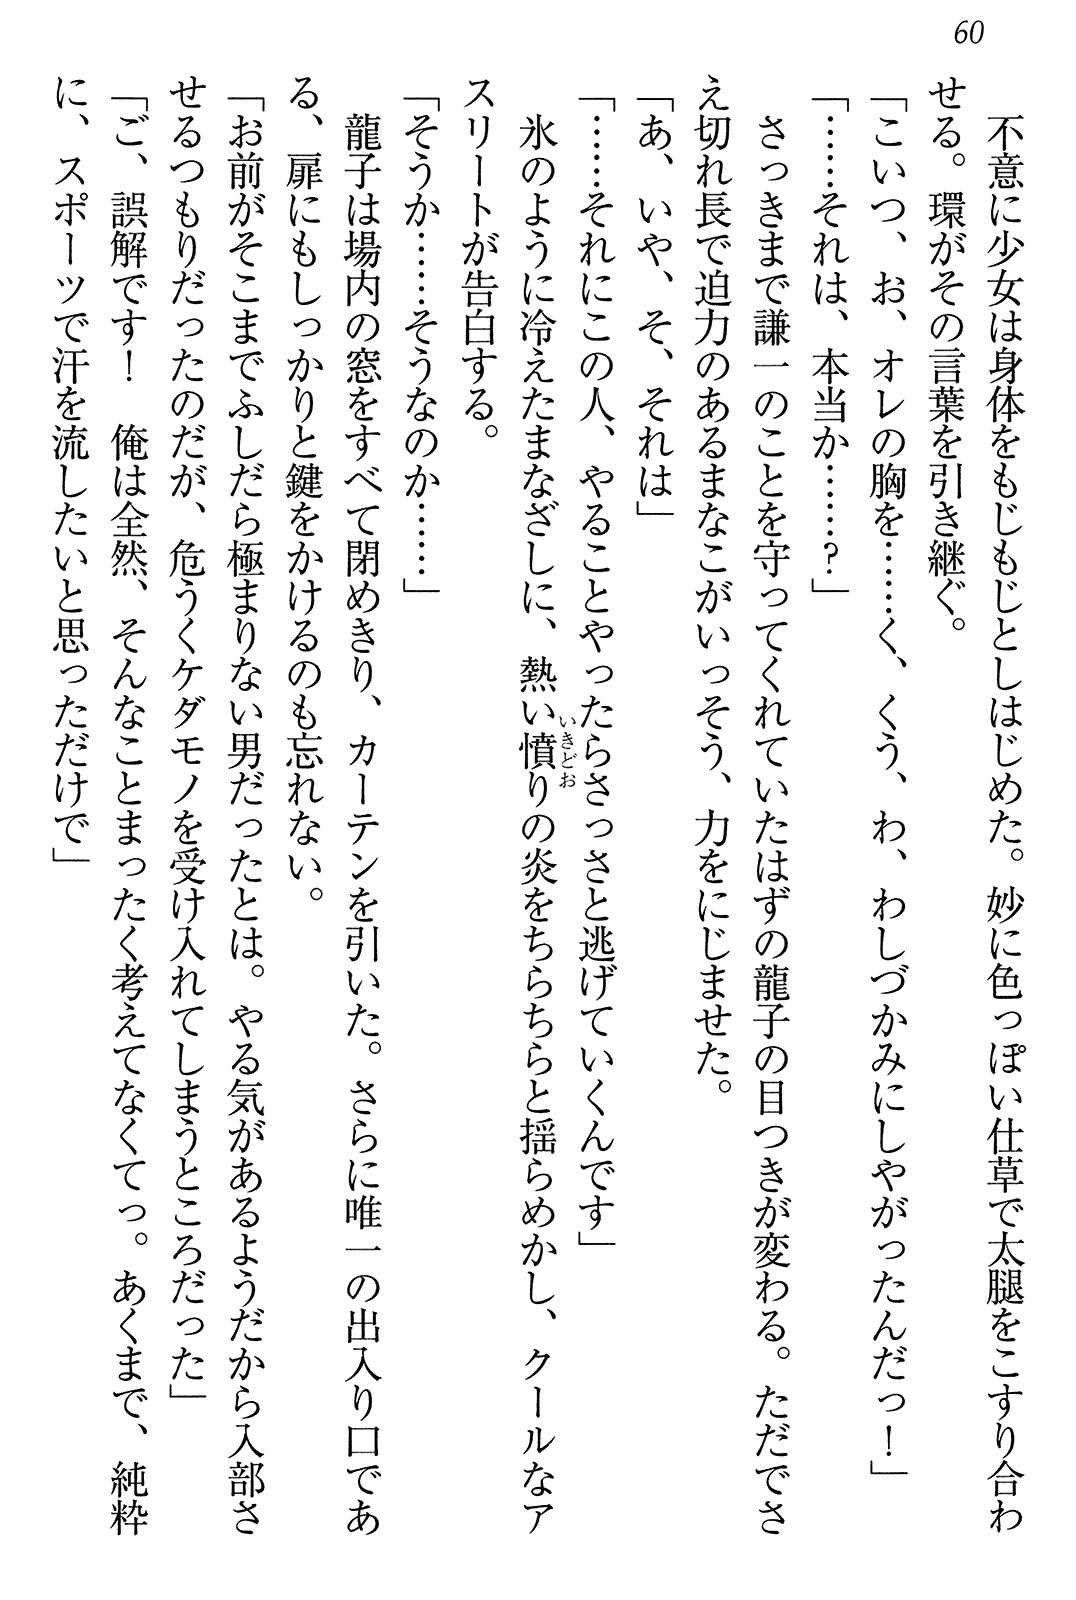 60
不意に少女は身体をもじもじとしはじめた。妙に色っぽい仕草で太腿をこすり合わ
せる。環がその言葉を引き継ぐ。
「こいつ、お、オレの胸を……く、くう、わ、わしづかみにしやがったんだっ！」
「……それは、本当か……？」
さっきまで謙一のことを守ってくれていたはずの龍子の目つきが変わる。ただでさ
え切れ長で迫力のあるまなこがいっそう、力をにじませた。
「あ、いや、そ、それは」
「……それにこの人、やることやったらさっさと逃げていくんです」
氷のように冷えたまなざしに、熱い憤りの炎をちらちらと揺らめかし、クールなア
いきどお
スリートが告白する。
「そうか……そうなのか……」
龍子は場内の窓をすべて閉めきり、カーテンを引いた。さらに唯一の出入り口であ
る、扉にもしっかりと鍵をかけるのも忘れない。
「お前がそこまでふしだら極まりない男だったとは。やる気があるようだから入部さ
せるつもりだったのだが、危うくケダモノを受け入れてしまうところだった」
「ご、誤解です！　俺は全然、そんなことまったく考えてなくてっ。あくまで、純粋
に、スポーツで汗を流したいと思っただけで」